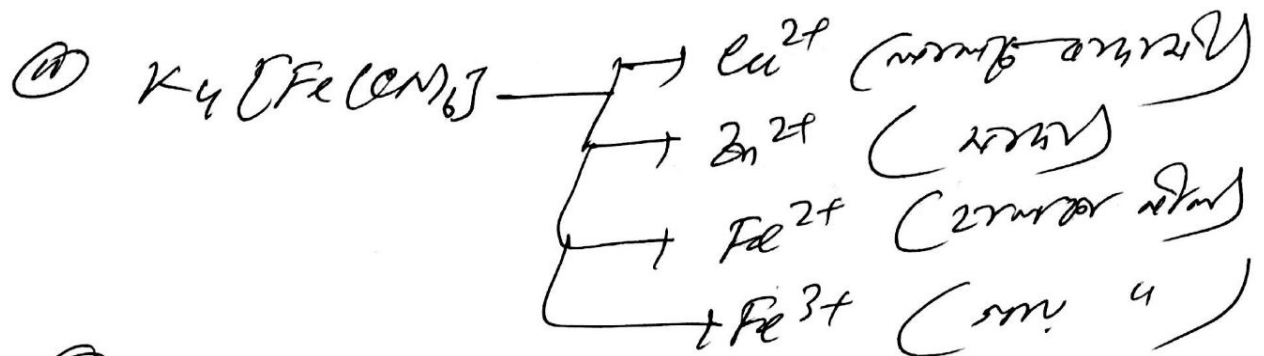 K₄[Fe(CN)₆] → Cu²⁺ (লালচে বাদামী)
→ Zn²⁺ (সাদা)
→ Fe²⁺ (হালকা নীল)
→ Fe³⁺ (গাঢ় ")